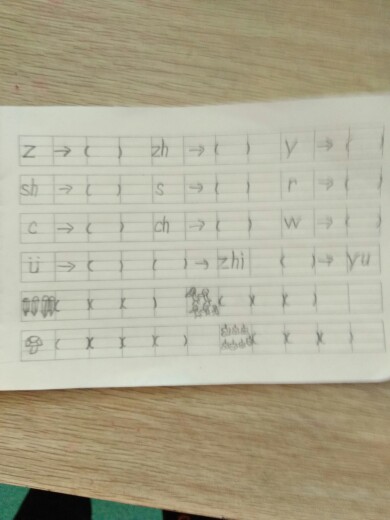 z → ( ) zh → ( ) y → ( )
sh → ( ) s → ( ) r → ( )
c → ( ) ch → ( ) w → ( )
ü → ( ) ( ) → zhi ( ) → yu
( )( )( ) ( )( )( )
( )( )( )( ) ( )( )( )